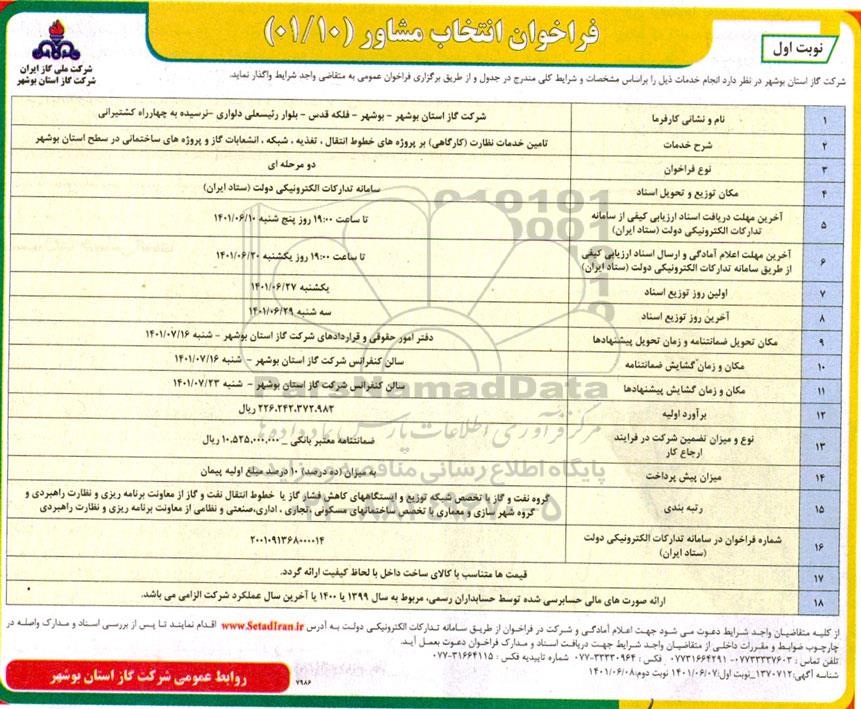 فراخوان انتخاب مشاور (۰۱/۱۰)
نوبت اول
شرکت ملی گاز ایران
شرکت گاز استان بوشهر
شرکت گاز استان بوشهر در نظر دارد انجام خدمات ذیل را براساس مشخصات و شرایط کلی مندرج در جدول و از طریق برگزاری فراخوان عمومی به متقاضی واجد شرایط واگذار نماید.
۱ نام و نشانی کارفرما شرکت گاز استان بوشهر - بوشهر - فلکه قدس - بلوار رئیسعلی دلواری -نرسیده به چهارراه کشتیرانی
۲ شرح خدمات تامین خدمات نظارت (کارگاهی) بر پروژه های خطوط انتقال ، تغذیه ، شبکه ، انشعابات گاز و پروژه های ساختمانی در سطح استان بوشهر
۳ نوع فراخوان دو مرحله ای
۴ مکان توزیع و تحویل اسناد سامانه تدارکات الکترونیکی دولت (ستاد ایران)
۵ آخرین مهلت دریافت اسناد ارزیابی کیفی از سامانه
تدارکات الکترونیکی دولت (ستاد ایران) تا ساعت ۱۹:۰۰ روز پنج شنبه ۱۴۰۱/۰۶/۱۰
۶ آخرین مهلت اعلام آمادگی و ارسال اسناد ارزیابی کیفی
از طریق سامانه تدارکات الکترونیکی دولت (ستاد ایران) تا ساعت ۱۹:۰۰ روز یکشنبه ۱۴۰۱/۰۶/۲۰
۷ اولین روز توزیع اسناد یکشنبه ۱۴۰۱/۰۶/۲۷
۸ آخرین روز توزیع اسناد سه شنبه ۱۴۰۱/۰۶/۲۹
۹ مکان تحویل ضمانتنامه و زمان تحویل پیشنهادها دفتر امور حقوقی و قراردادهای شرکت گاز استان بوشهر - شنبه ۱۴۰۱/۰۷/۱۶
۱۰ مکان و زمان گشایش ضمانتنامه سالن کنفرانس شرکت گاز استان بوشهر - شنبه ۱۴۰۱/۰۷/۱۶
۱۱ مکان و زمان گشایش پیشنهادها سالن کنفرانس شرکت گاز استان بوشهر - شنبه ۱۴۰۱/۰۷/۲۳
۱۲ برآورد اولیه ۲۲۶.۲۴۲.۳۷۲.۹۸۲ ریال
۱۳ نوع و میزان تضمین شرکت در فرایند
ارجاع کار ضمانتنامه معتبر بانکی _ ۱۰.۵۲۵.۰۰۰.۰۰۰ ریال
۱۴ میزان پیش پرداخت به میزان (ده درصد) ۱۰ درصد مبلغ اولیه پیمان
۱۵ رتبه بندی گروه نفت و گاز با تخصص شبکه توزیع و ایستگاههای کاهش فشار گاز یا خطوط انتقال نفت و گاز از معاونت برنامه ریزی و نظارت راهبردی و
گروه شهر سازی و معماری با تخصص ساختمانهای مسکونی ،تجاری ، اداری،صنعتی و نظامی از معاونت برنامه ریزی و نظارت راهبردی
۱۶ شماره فراخوان در سامانه تدارکات الکترونیکی دولت
(ستاد ایران) ۲۰۰۱۰۹۱۳۶۸۰۰۰۰۱۴
۱۷ قیمت ها متناسب با کالای ساخت داخل با لحاظ کیفیت ارائه گردد.
۱۸ ارائه صورت های مالی حسابرسی شده توسط حسابداران رسمی، مربوط به سال ۱۳۹۹ یا ۱۴۰۰ یا آخرین سال عملکرد شرکت الزامی می باشد.
از کلیه متقاضیان واجد شرایط دعوت می شود جهت اعلام آمادگی و شرکت در فراخوان از طریق سامانه تدارکات الکترونیکی دولت به آدرس www.SetadIran.ir اقدام نمایند تا پس از بررسی اسناد و مدارک واصله در
چارچوب ضوابط و مقررات داخلی از متقاضیان واجد شرایط جهت دریافت اسناد و مدارک فراخوان دعوت بعمل آید.
تلفن تماس : ۰۷۷۳۳۳۳۷۶۰۳- ۰۷۷۳۱۶۶۴۲۹۱ فکس : ۳۳۳۳۰۹۶۴-۰۷۷ شماره تاییدیه فکس : ۳۱۶۶۴۱۱۵-۰۷۷
شناسه آگهی:۱۳۷۰۷۱۲_نوبت اول:۱۴۰۱/۰۶/۰۷ نوبت دوم:۱۴۰۱/۰۶/۰۸
روابط عمومی شرکت گاز استان بوشهر
۷۹۸۶
ParsNamadData
مرکز فرآوری اطلاعات پارس نماد داده ها
پایگاه اطلاع رسانی مناقصه و مزایده